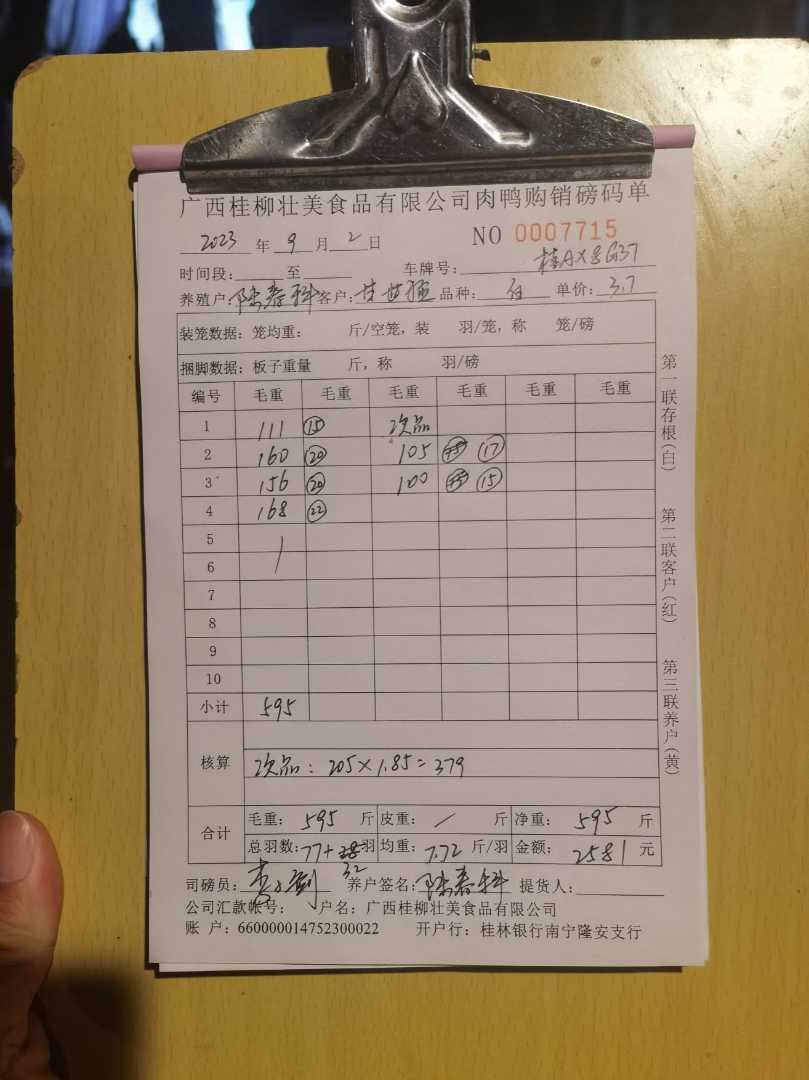 广西桂柳壮美食品有限公司肉鸭购销磅码单
2023 年 9 月 2 日 NO 0007715
时间段: 至 车牌号: 桂AX8G37
养殖户: 陆春科 客户: 甘世 品种: 白 单价: 3.7
装笼数据: 笼均重: 斤/空笼, 装 羽/笼, 称 笼/磅
捆脚数据: 板子重量 斤, 称 羽/磅
编号 毛重 毛重 毛重 毛重 毛重 毛重
1 111 15 次品
2 160 20 105 17
3 156 20 100 15
4 168 22
5 /
6
7
8
9
10
小计 595
核算
次品: 205×1.85=379
合计
毛重: 595 斤 皮重: / 斤 净重: 595 斤
总羽数: 77+ 羽 均重: 7.72 斤/羽 金额: 2581 元
32
司磅员: 养户签名: 陆春科 提货人:
公司汇款帐号: 户名: 广西桂柳壮美食品有限公司
账 户: 660000014752300022 开户行: 桂林银行南宁隆安支行
第一联存根(白)
第二联客户(红)
第三联养户(黄)